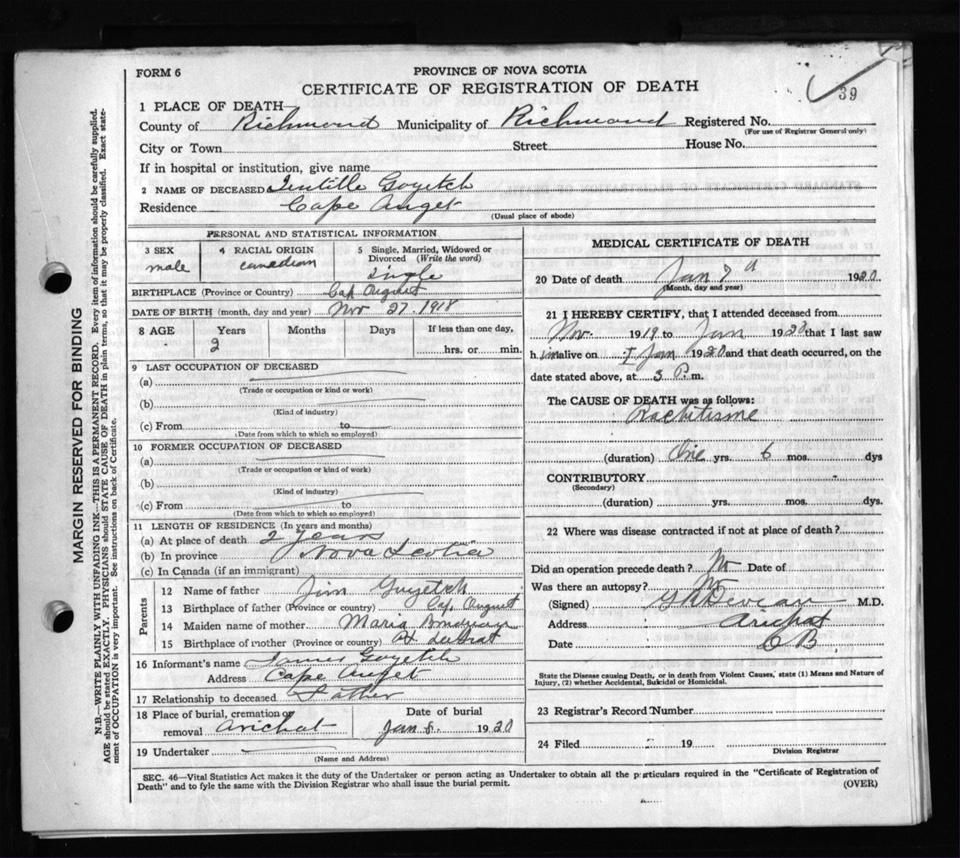 FORM 6
PROVINCE OF NOVA SCOTIA
CERTIFICATE OF REGISTRATION OF DEATH
39
1 PLACE OF DEATH—
County of Richmond Municipality of Richmond Registered No.
(For use of Registrar General only)
City or Town Street House No.
If in hospital or institution, give name
2 NAME OF DECEASED Goyetch
Residence Cape Auget
(Usual place of abode)
PERSONAL AND STATISTICAL INFORMATION
3 SEX male
4 RACIAL ORIGIN canadian
5 Single, Married, Widowed or Divorced (Write the word) Single
BIRTHPLACE (Province or Country) Cap August
DATE OF BIRTH (month, day and year) Nov 27. 1918
8 AGE Years Months Days If less than one day,
2 hrs. or min.
9 LAST OCCUPATION OF DECEASED
(a)
(Trade or occupation or kind or work)
(b)
(Kind of industry)
(c) From to
(Date from which to which so employed)
10 FORMER OCCUPATION OF DECEASED
(a)
(Trade or occupation or kind of work)
(b)
(Kind of industry)
(c) From to
(Date from which to which so employed)
11 LENGTH OF RESIDENCE (In years and months)
(a) At place of death 2 years
(b) In province Nova Scotia
(c) In Canada (if an immigrant)
Parents
12 Name of father Jim Goyetch
13 Birthplace of father (Province or country) Cap August
14 Maiden name of mother Maria
15 Birthplace of mother (Province or country)
16 Informant's name James Goyetch
Address Cape Auget
17 Relationship to deceased Father
18 Place of burial, cremation or removal Arichat
Date of burial Jan 8. 1920
19 Undertaker
(Name and Address)
MEDICAL CERTIFICATE OF DEATH
20 Date of death Jan 7 1920
(Month, day and year)
21 I HEREBY CERTIFY, that I attended deceased from
Nov. 1919 to Jan 1920 that I last saw
h im alive on 7 Jan 1920 and that death occurred, on the
date stated above, at 3 P. m.
The CAUSE OF DEATH was as follows:
Rachitisme
(duration) One yrs. 6 mos. dys
CONTRIBUTORY
(Secondary)
(duration) yrs. mos. dys.
22 Where was disease contracted if not at place of death?
Did an operation precede death? No Date of
Was there an autopsy? No
(Signed) M.D.
Address Arichat
Date C B.
State the Disease causing Death, or in death from Violent Causes, state (1) Means and Nature of
Injury, (2) whether Accidental, Suicidal or Homicidal.
23 Registrar's Record Number
24 Filed 19
Division Registrar
SEC. 46—Vital Statistics Act makes it the duty of the Undertaker or person acting as Undertaker to obtain all the particulars required in the "Certificate of Registration of
Death" and to fyle the same with the Division Registrar who shall issue the burial permit.
(OVER)
MARGIN RESERVED FOR BINDING
N.B.—WRITE PLAINLY WITH UNFADING INK—THIS IS A PERMANENT RECORD. Every item of information should be carefully supplied.
AGE should be stated EXACTLY. PHYSICIANS should STATE CAUSE OF DEATH in plain terms, so that it may be properly classified. Exact state-
ment of OCCUPATION is very important. See instructions on back of Certificate.